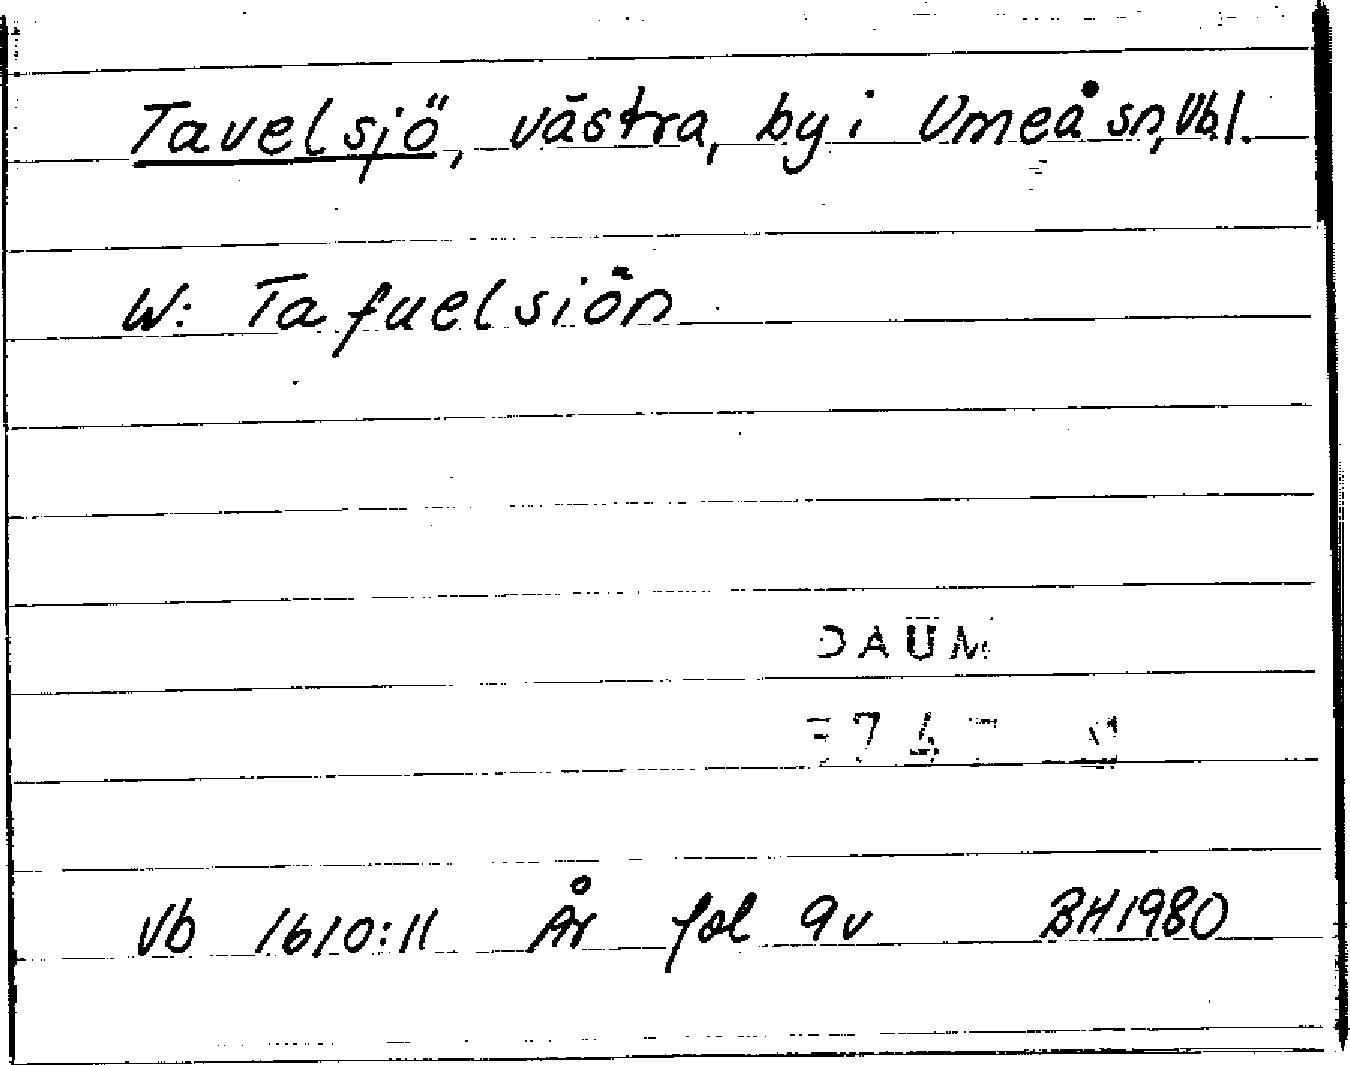 Tavelsjö, västra, by i Umeå sn, Vbl.
W: Tafuelsiön
DAUM
Vb 1610:11 År fol 9v BH 1980